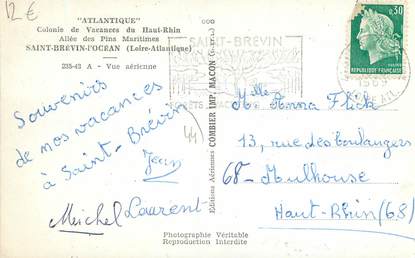 12€
"ATLANTIQUE"
Colonie de Vacances du Haut-Rhin
Allée des Pins Maritimes
SAINT-BREVIN-l'OCÉAN (Loire-Atlantique)
235-42 A - Vue aérienne
Souvenirs
de nos vacances
à Saint-Brévin
Jean
Meichel Laurent
44
Photographie Véritable
Reproduction Interdite
Editions Aériennes COMBIER IMP. MACON
SAINT-BREVIN
0,30
REPUBLIQUE FRANÇAISE
1969
Mlle Anna Flick
13, rue des boulangers
68- Mulhouse
Haut-Rhin (68)